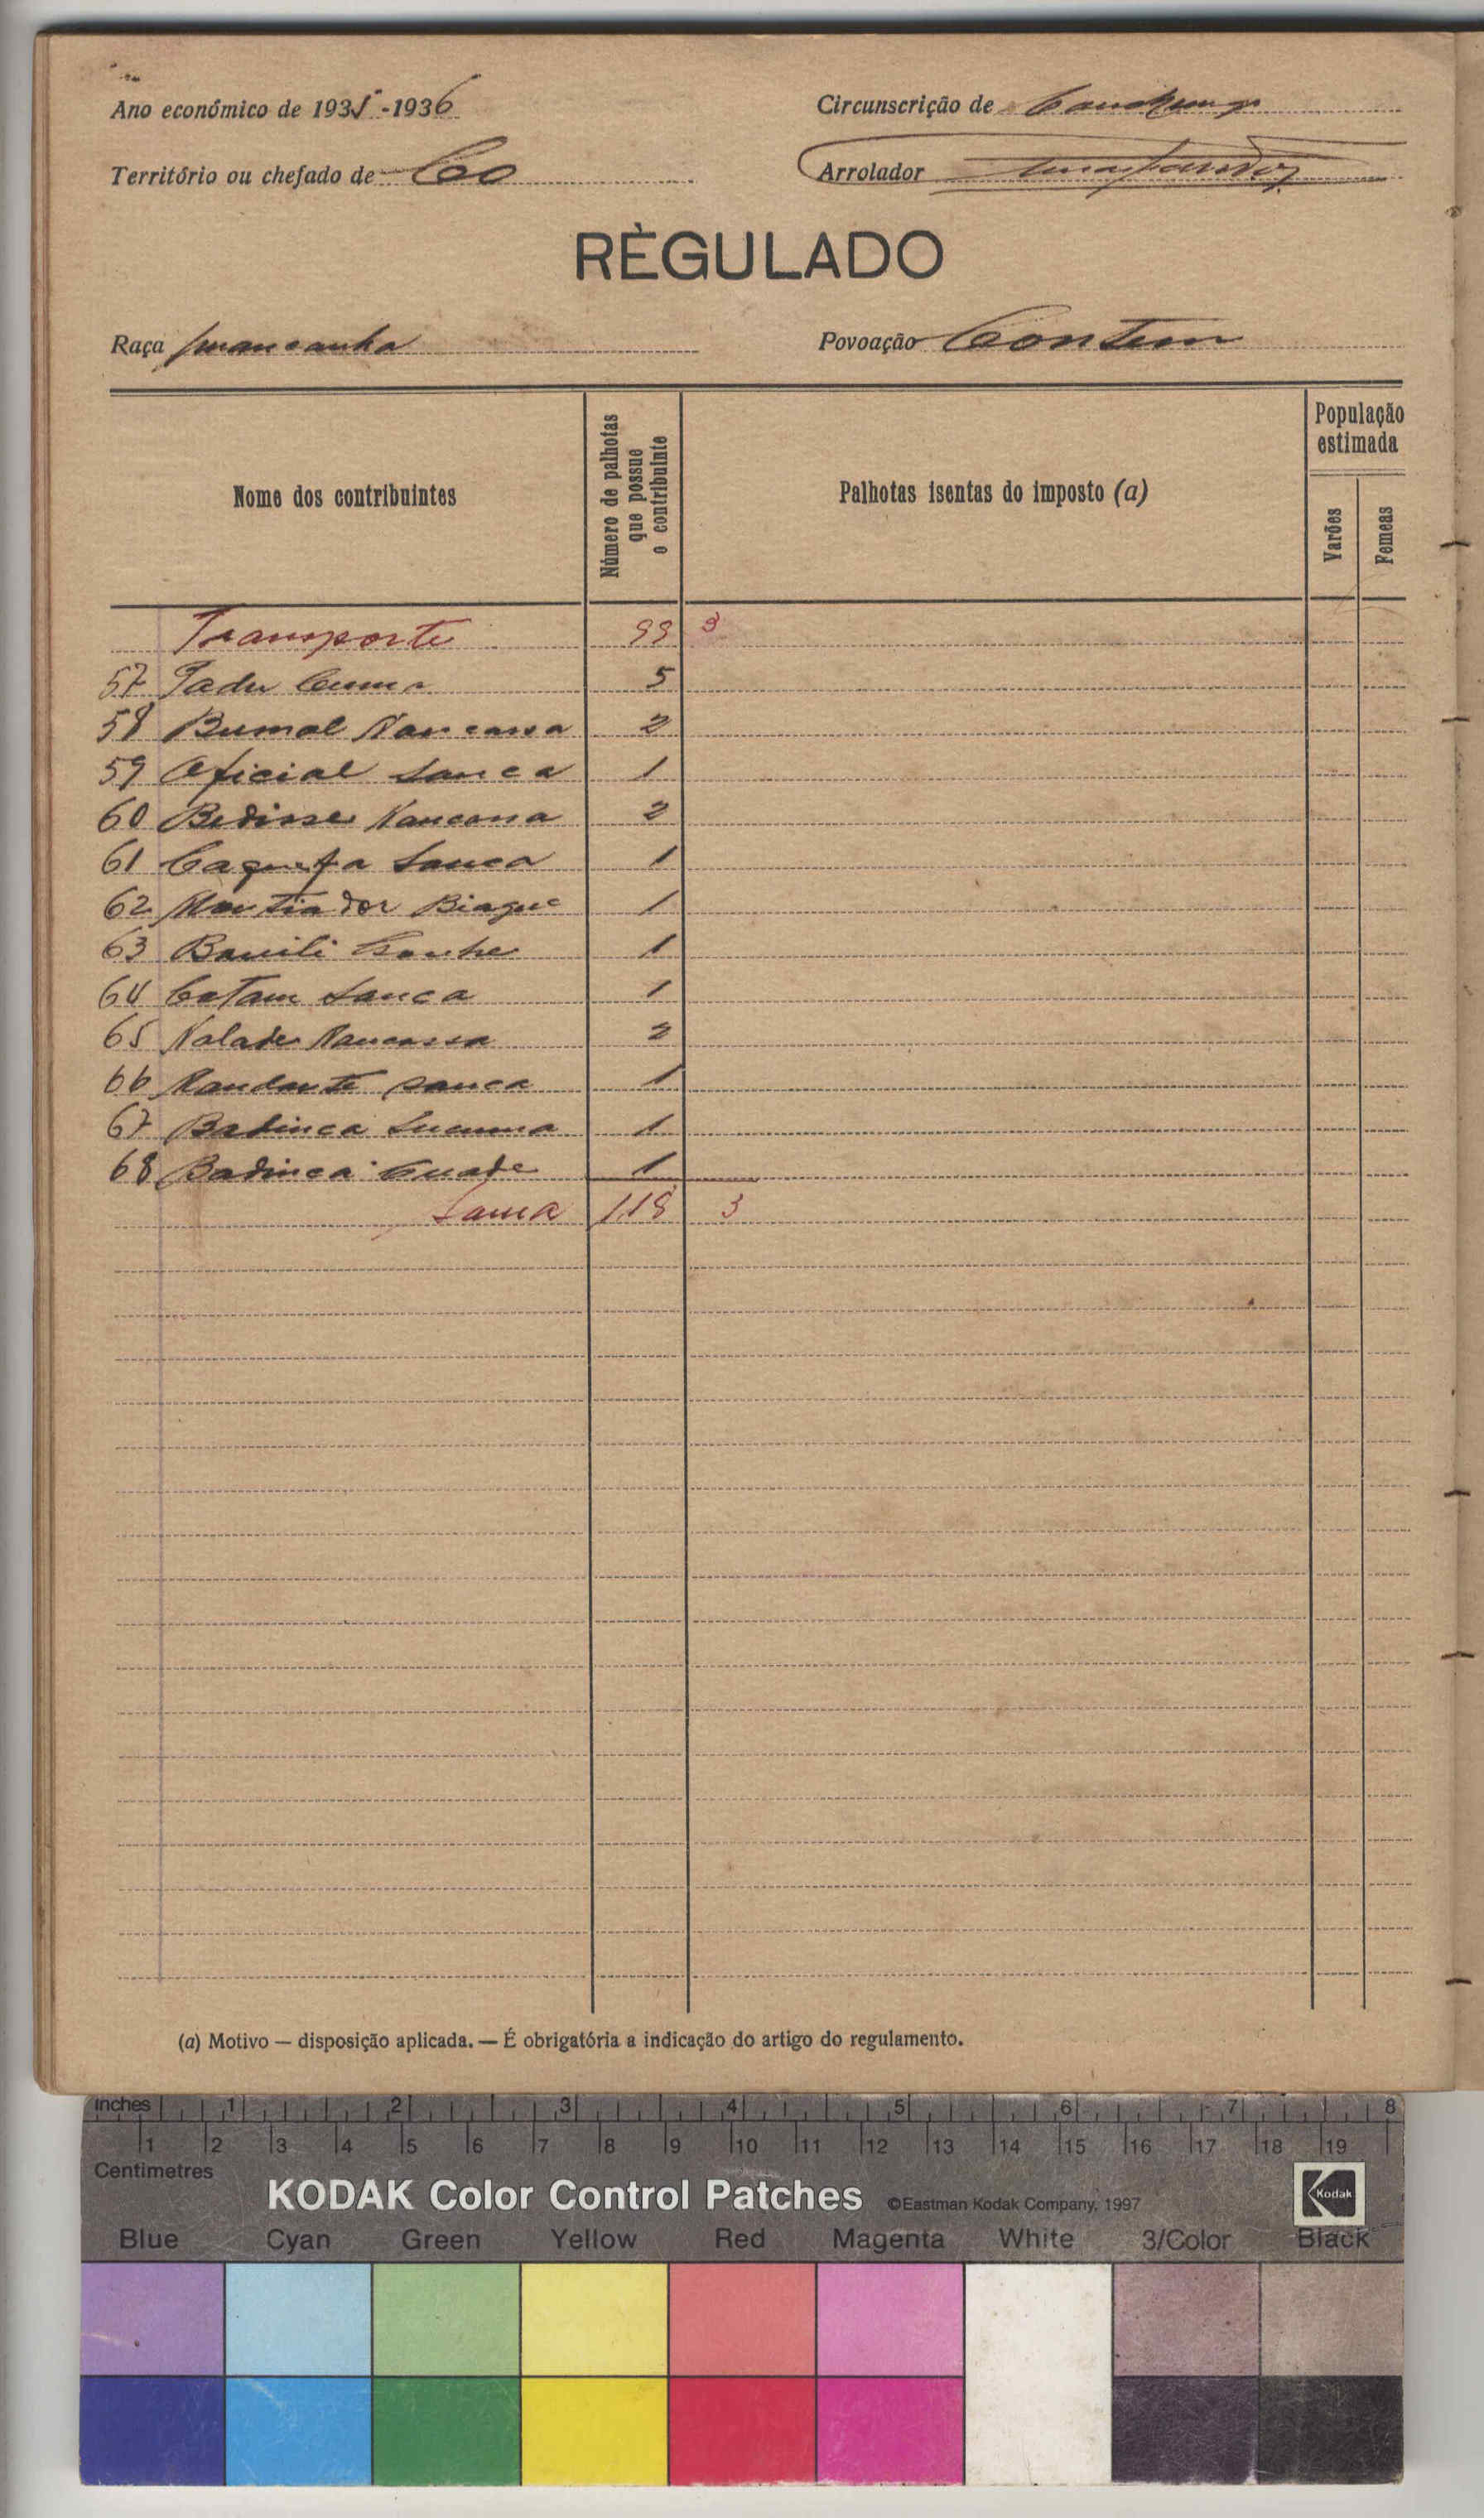 Ano económico de 1935-1936
Circunscrição de
Território ou chefado de Co
Arrolador
RÈGULADO
Raça mancanha
Povoação Contem
Nome dos contribuintes
Número de palhotas que possue o contribuinte
Palhotas isentas do imposto (a)
População estimada
Varões
Femeas
Transporte 99 3
57 Tadu 5
58 Bumol Nancassa 2
59 Oficial Sanca 1
60 Bedisse Nancassa 2
61 Sanca 1
62 Biague 1
63 1
64 Catam Sanca 1
65 Nalade Nancassa 2
66 Sanca 1
67 Badinca 1
68 Badinca 1
Soma 118 3
(a) Motivo — disposição aplicada. — É obrigatória a indicação do artigo do regulamento.
inches 1 2 3 4 5 6 7 8
1 2 3 4 5 6 7 8 9 10 11 12 13 14 15 16 17 18 19
Centimetres
KODAK Color Control Patches ©Eastman Kodak Company, 1997 Kodak
Blue Cyan Green Yellow Red Magenta White 3/Color Black